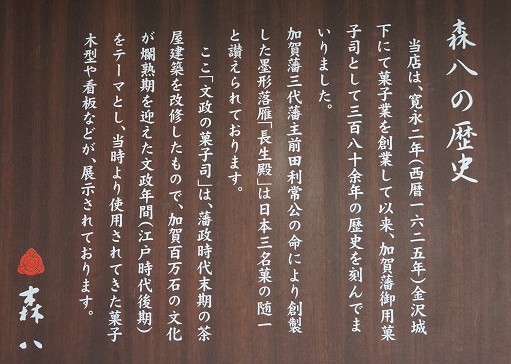 森八の歴史
当店は、寛永二年(西暦一六二五年)金沢城
下にて菓子業を創業して以来、加賀藩御用菓
子司として三百八十余年の歴史を刻んでま
いりました。
加賀藩三代藩主前田利常公の命により創製
した墨形落雁「長生殿」は日本三名菓の随一
と讃えられております。
ここ「文政の菓子司」は、藩政時代末期の茶
屋建築を改修したもので、加賀百万石の文化
が爛熟期を迎えた文政年間(江戸時代後期)
をテーマとし、当時より使用されてきた菓子
木型や看板などが、展示されております。
森八